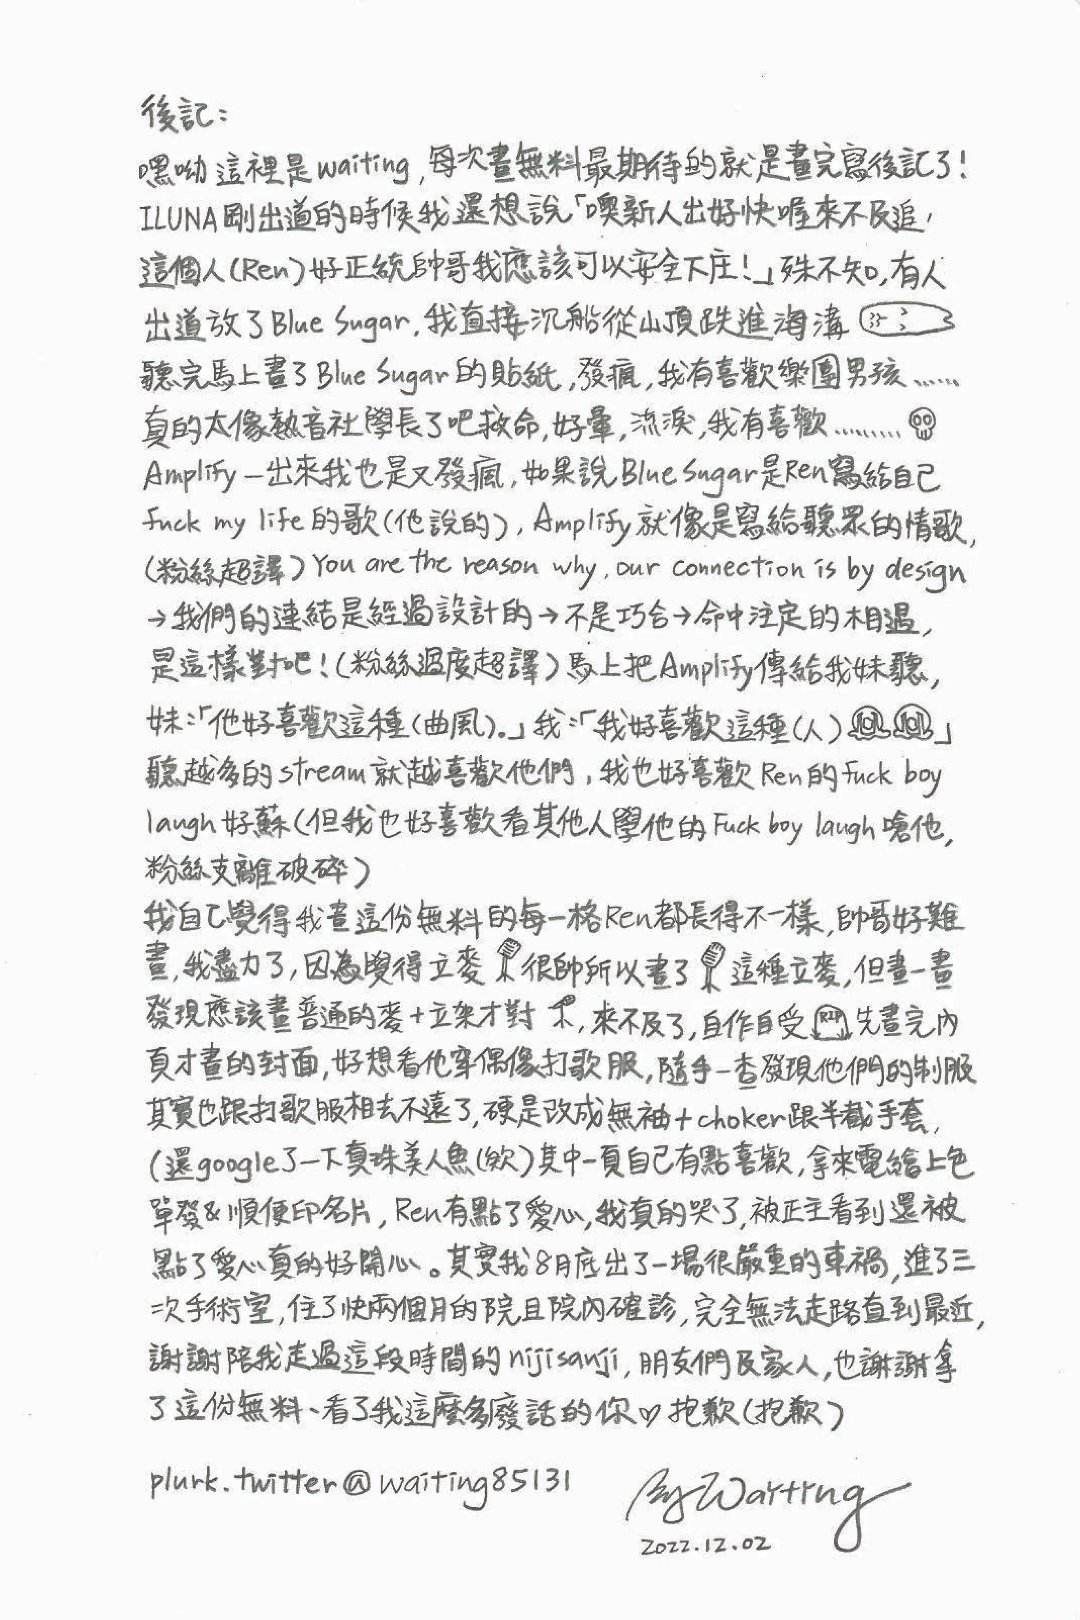 後記：
嘿呦這裡是waiting，每次畫無料最期待的就是畫完寫後記了！
ILUNA剛出道的時候我還想說「噢新人出好快喔來不及追，
這個人(Ren)好正統帥哥我應該可以安全下庄！」殊不知，有人
出道放了Blue Sugar，我直接沉船從山頂跌進海溝
聽完馬上畫了Blue Sugar的貼紙，發瘋，我有喜歡樂團男孩……
真的太像熱音社學長了吧救命，好暈，流淚，我有喜歡………
Amplify一出來我也是又發瘋，如果說Blue Sugar是Ren寫給自己
fuck my life的歌(他說的)，Amplify就像是寫給聽眾的情歌，
(粉絲超譯)You are the reason why, our connection is by design
→我們的連結是經過設計的→不是巧合→命中注定的相遇，
是這樣對吧！(粉絲過度超譯)馬上把Amplify傳給我妹聽，
妹：「他好喜歡這種(曲風)。」我：「我好喜歡這種(人)」
聽越多的stream就越喜歡他們，我也好喜歡Ren的fuck boy
laugh好蘇(但我也好喜歡看其他人學他的Fuck boy laugh嗆他，
粉絲支離破碎)
我自己覺得我畫這份無料的每一格Ren都長得不一樣，帥哥好難
畫，我盡力了，因為覺得立麥很帥所以畫了這種立麥，但畫一畫
發現應該畫普通的麥+立架才對，來不及了，自作自受 先畫完內
頁才畫的封面，好想看他穿偶像打歌服，隨手一查發現他們的制服
其實也跟打歌服相去不遠了，硬是改成無袖+choker跟半截手套，
(還google了一下真珠美人魚(欸)其中一頁自己有點喜歡，拿來電繪上色
單發&順便印名片，Ren有點了愛心，我真的哭了，被正主看到還被
點了愛心真的好開心。其實我8月底出了一場很嚴重的車禍，進了三
次手術室，住了快兩個月的院且院內確診，完全無法走路直到最近，
謝謝陪我走過這段時間的nijisanji，朋友們及家人，也謝謝拿
了這份無料、看了我這麼多廢話的你♡抱歉(抱歉)
plurk.twitter@waiting85131
By Waiting
2022.12.02